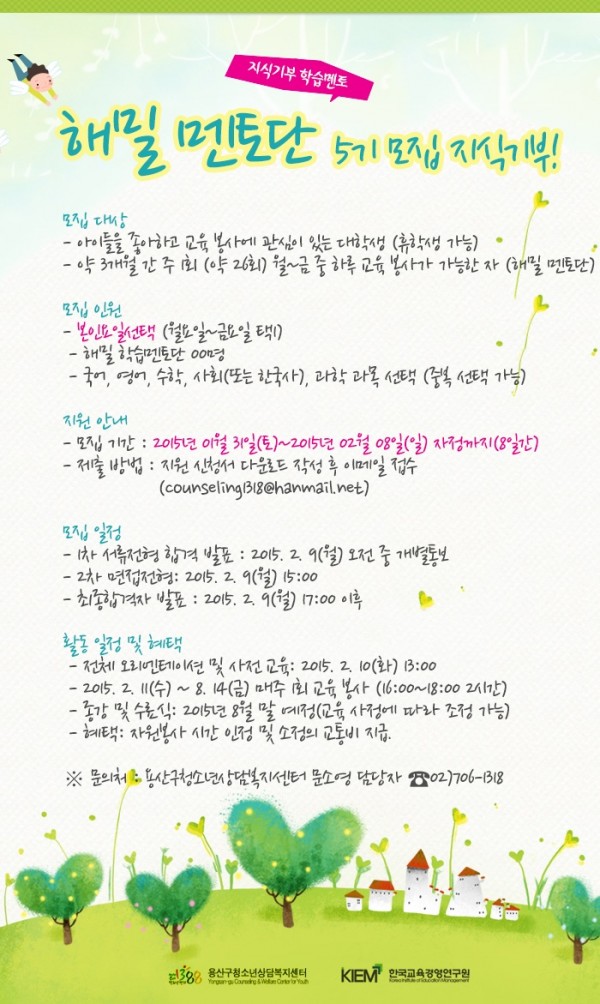 지식기부 학습멘토
해밀 멘토단 5기 모집 지식기부!
모집 대상
- 아이들을 좋아하고 교육 봉사에 관심이 있는 대학생 (휴학생 가능)
- 약 3개월 간 주 1회 (약 26회) 월~금 중 하루 교육 봉사가 가능한 자 (해밀 멘토단)
모집 인원
- 본인요일선택 (월요일~금요일 택1)
- 해밀 학습멘토단 00명
- 국어, 영어, 수학, 사회(또는 한국사), 과학 과목 선택 (중복 선택 가능)
지원 안내
- 모집 기간 : 2015년 01월 31일(토)~2015년 02월 08일(일) 자정까지(8일간)
- 제출 방법 : 지원 신청서 다운로드 작성 후 이메일 접수
(counseling1318@hanmail.net)
모집 일정
- 1차 서류전형 합격 발표 : 2015. 2. 9(월) 오전 중 개별통보
- 2차 면접전형: 2015. 2. 9(월) 15:00
- 최종합격자 발표 : 2015. 2. 9(월) 17:00 이후
활동 일정 및 혜택
- 전체 오리엔테이션 및 사전 교육: 2015. 2. 10(화) 13:00
- 2015. 2. 11(수) ~ 8. 14(금) 매주 1회 교육 봉사 (16:00~18:00 2시간)
- 종강 및 수료식: 2015년 8월 말 예정(교육 사정에 따라 조정 가능)
- 혜택: 자원봉사 시간 인정 및 소정의 교통비 지급.
※ 문의처 : 용산구청소년상담복지센터 문소영 담당자 ☎02)706-1318
1388 용산구청소년상담복지센터
Yongsan-gu Counseling & Welfare Center for Youth
KIEM 한국교육경영연구원
Korea Institute of Education Management